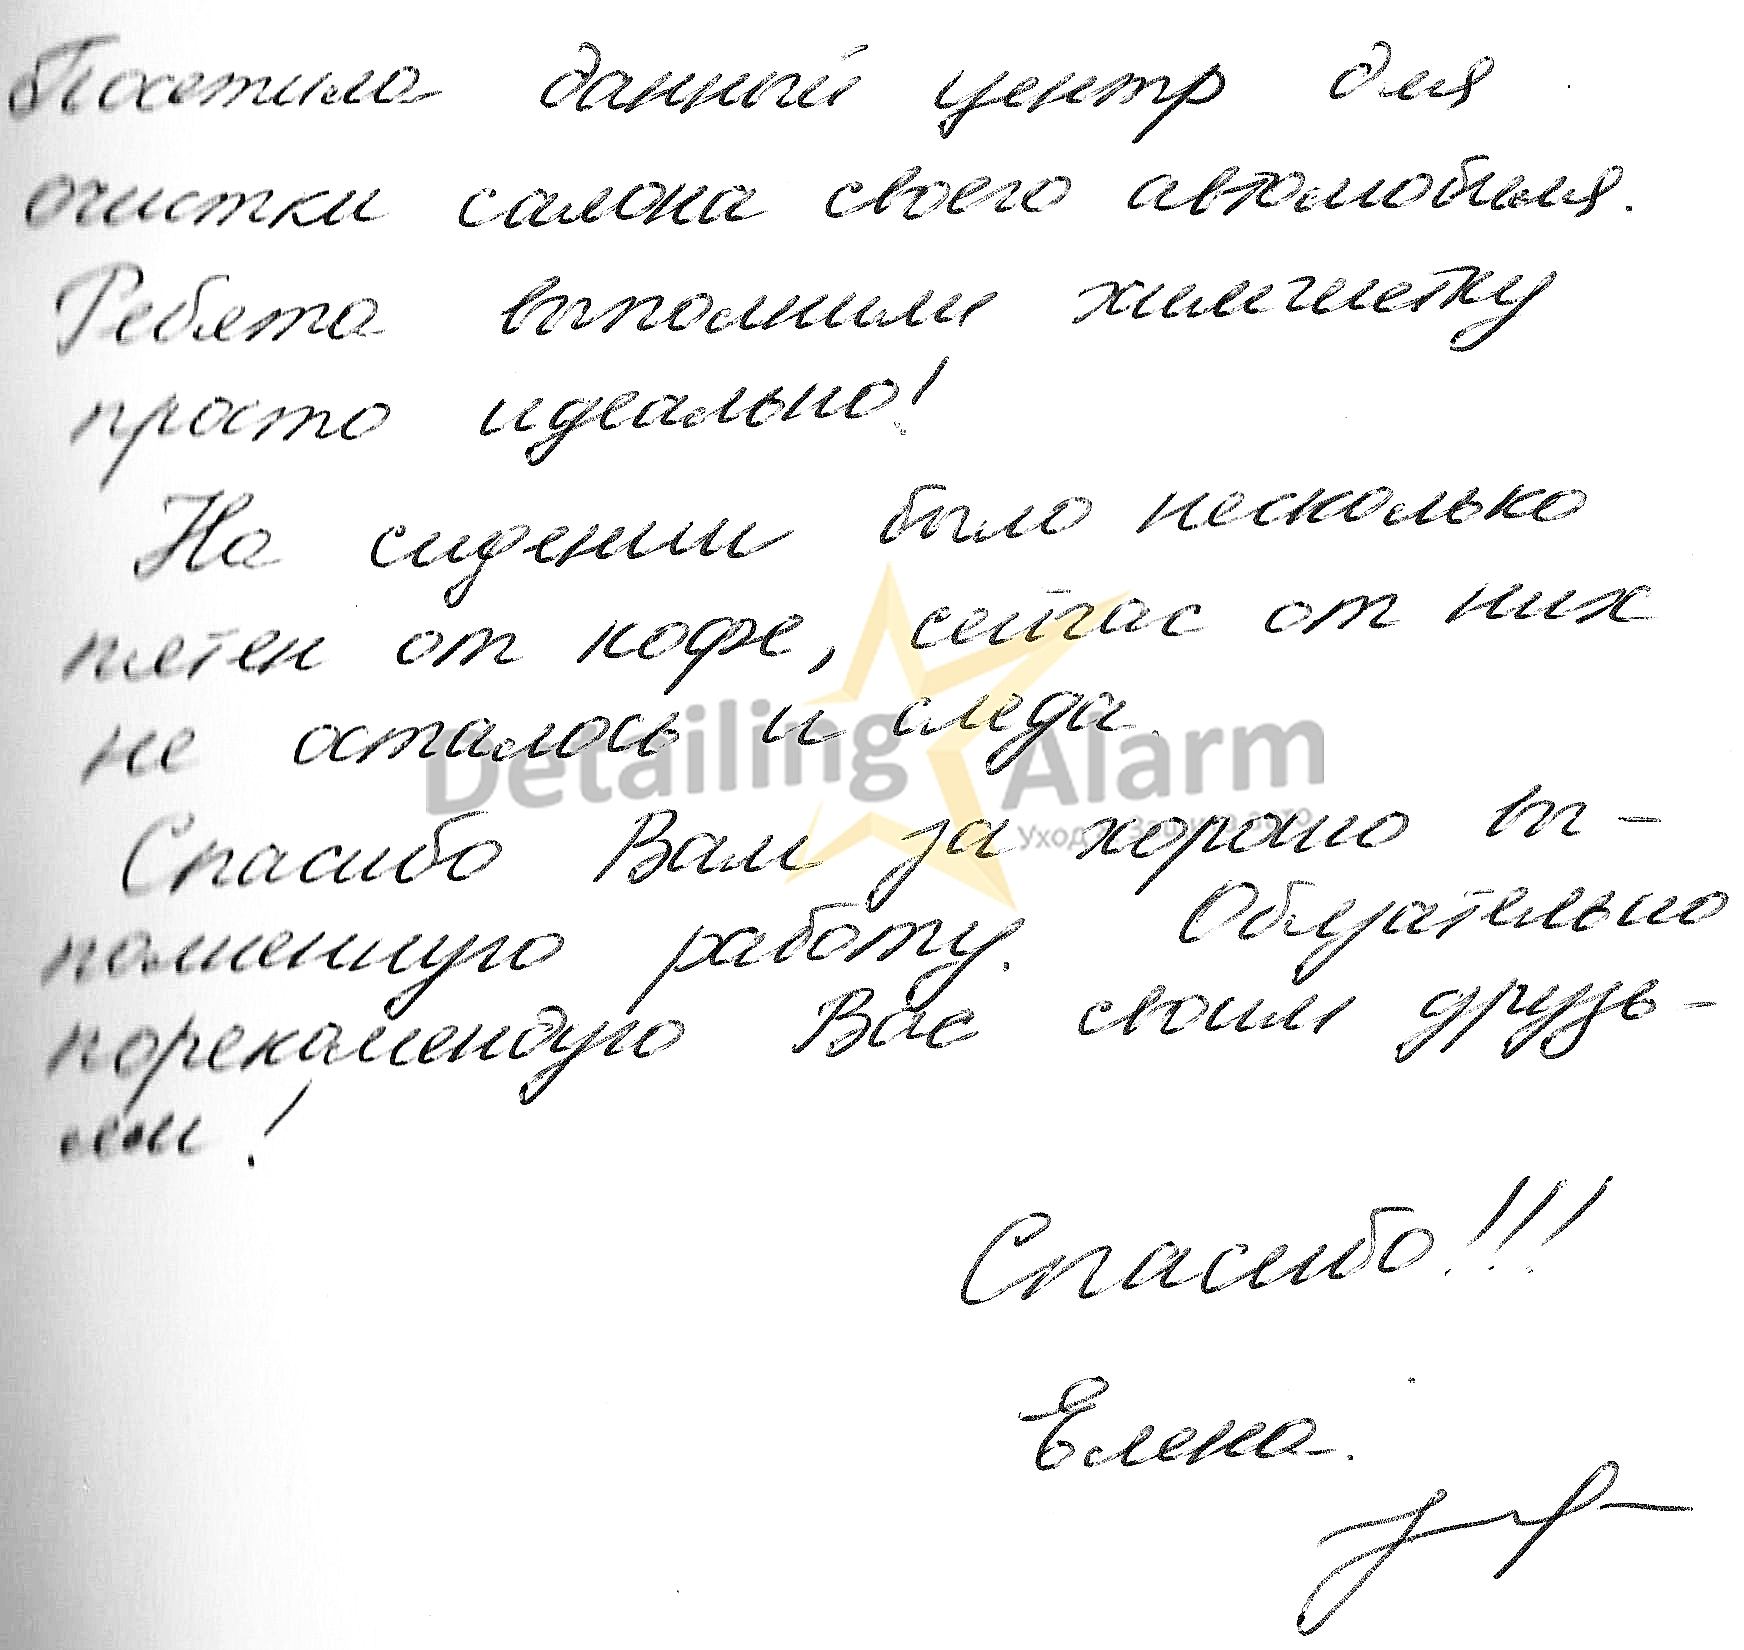 Посетила данный центр для
очистки салона своего автомобиля.
Ребята выполнили химчистку
просто идеально!
На сидении было несколько
пятен от кофе, сейчас от них
не осталось и следа.
Detailing Alarm
Уход и Защита авто
Спасибо Вам за хорошо вы-
полненную работу. Обязательно
порекомендую Вас своим друзь-
ям!
Спасибо!!!
Елена.